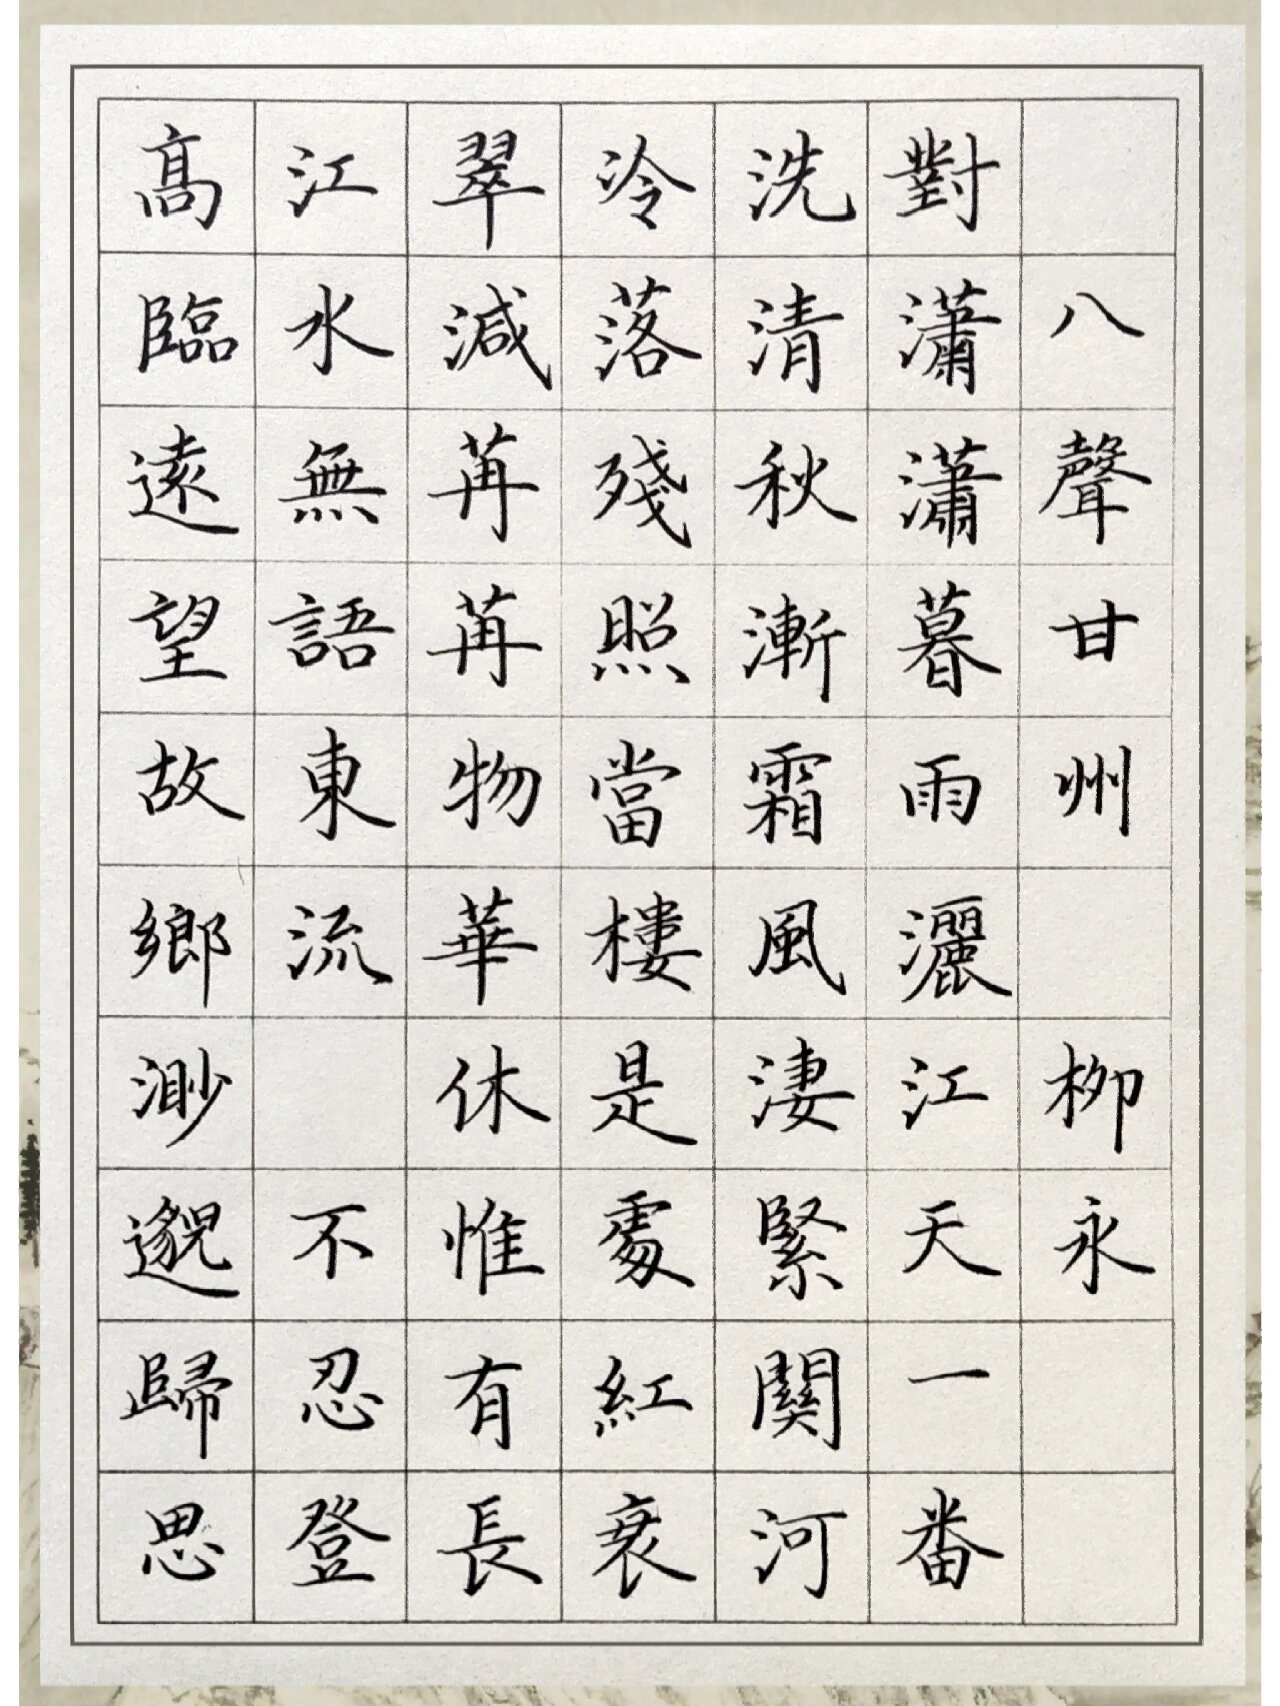 八聲甘州 柳永
對瀟瀟暮雨灑江天一番
洗清秋漸霜風淒緊關河
冷落殘照當樓是處紅衰
翠減苒苒物華休惟有長
江水無語東流 不忍登
高臨遠望故鄉渺邈歸思